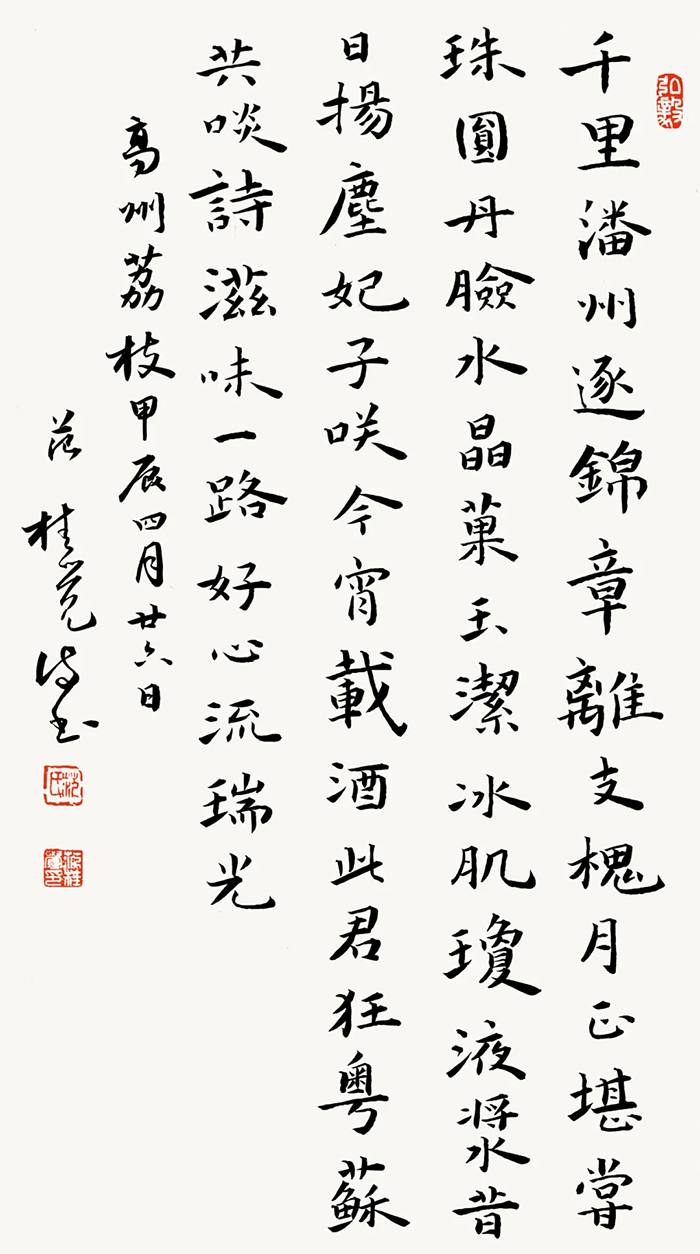 弘毅
千里潘州逐錦章離支槐月正堪甞
珠圓丹臉水晶菓玉潔冰肌瓊液漿昔
日揚塵妃子咲今宵載酒此君狂粤蘇
共啖詩滋味一路好心流瑞光
高州荔枝甲辰四月廿六日
范桂诗书
范氏